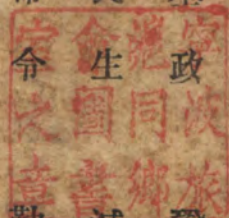 政
生
令
寧波旅
滬同鄉
會圖書
室之章